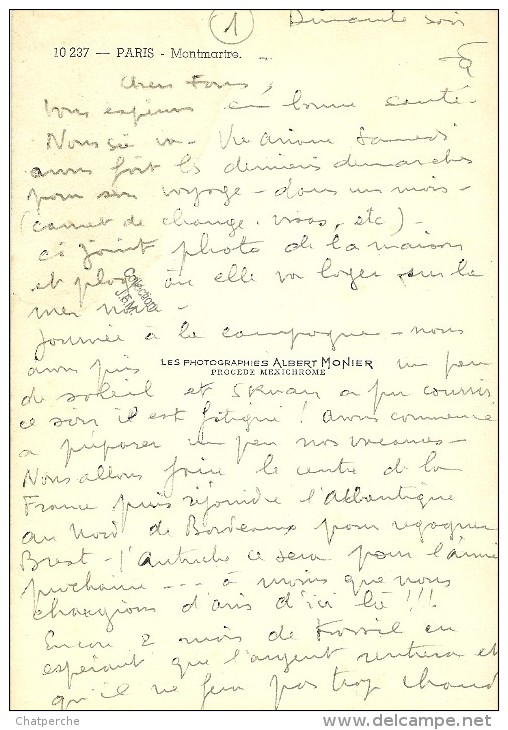 1 Dimanche soir
10 237 — PARIS - Montmartre.
Chers Tous,
Vous espérons en bonne santé.
Nous ça va - Viviane Samedi
avons fait les derniers démarches
pour son voyage - dans un mois -
(carnet de change, visas, etc) -
ci joint photo de la maison
et plage où elle va loger sur la
mer noire -
Collections J.F.M.
Journée à la campagne - nous
avons pris un peu
LES PHOTOGRAPHIES ALBERT MONIER
PROCÉDÉ MEXICHROME
de soleil et a pu courir
ce soir il est fatigué ! avons commencé
a préparer un peu nos vacances -
Nous allons faire le centre de la
France puis rejoindre l'Atlantique
au Nord de Bordeaux pour regagner
Brest - l'Autriche ce sera pour l'année
prochaine --- à moins que nous
changions d'avis d'ici là !!!
Encore 2 mois de travail en
espérant que l'argent rentrera et
qu'il ne fera pas trop chaud
Chatperche
delcampe.net